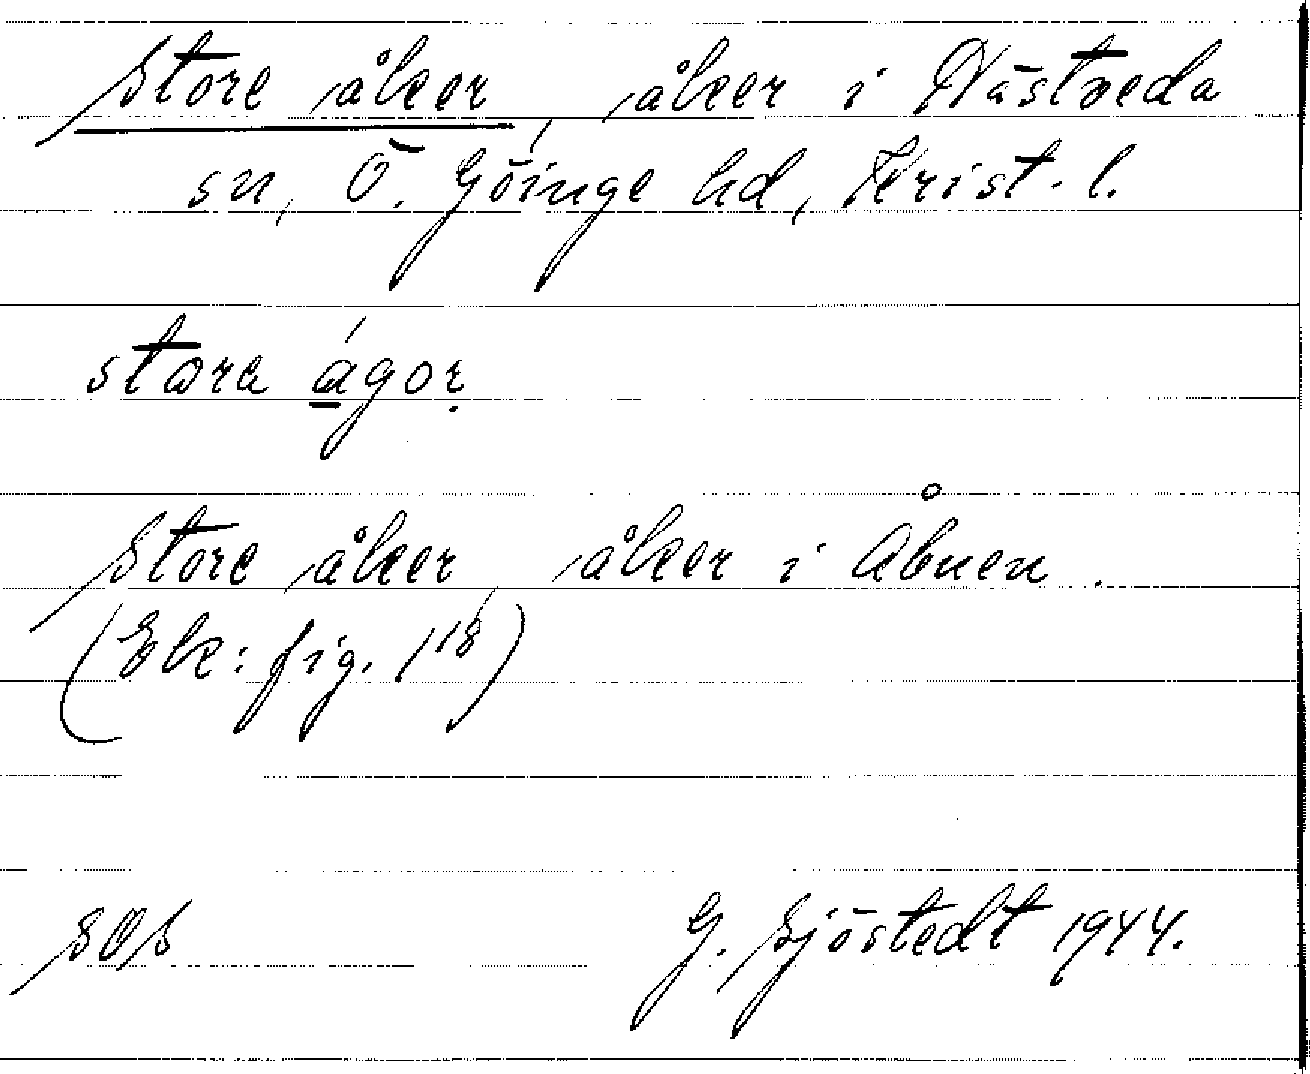 Store åker, åker i Nästveda
sn, Ö. Göinge hd, Krist. l.
stora ágor
Store åker, åker i Åbuen.
(Ek: fig. 1 18)
SOS G. Sjöstedt 1944.